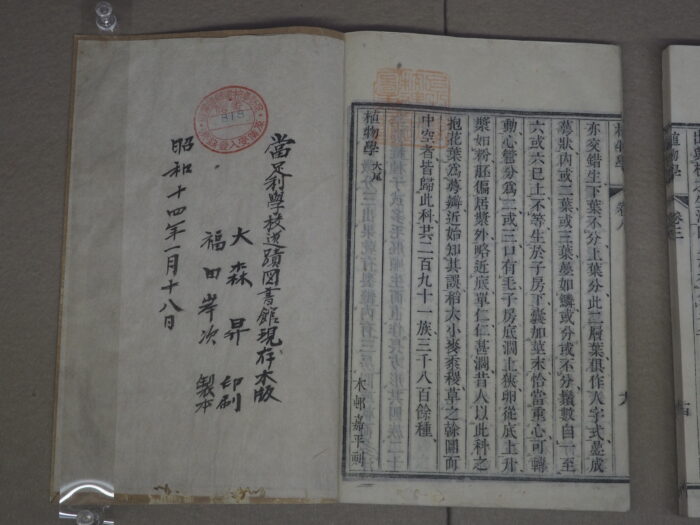 植物學
卷八
亦交錯生下葉不分上葉分此二層葉俱作人字式疊成
蕚狀內或二葉或三葉疊如鱗或分或不分鬚數自一至
六或六已上不等生於子房下囊加莖末恰當重心可轉
動心管分爲二或三口有毛子房底濶上狹卵從底上升
漿如粉胚偏居漿外略近底單仁仁甚濶昔人以此科之
抱花葉爲蕚瓣近始知其誤稻大小麥黍稷草之榦圓而
中空者皆歸此科共二百九十一族三千八百餘種
植物學 大尾
木邨嘉平刻
當足利學校遺蹟図書館現存木版
大森昇 印刷
福田岸次 製本
昭和十四年一月十八日